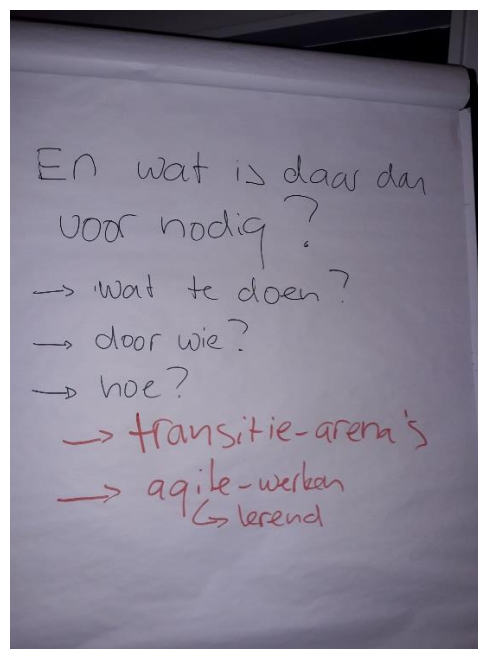 En wat is daar dan
voor nodig?
→ wat te doen?
→ door wie?
→ hoe?
→ transitie-arena's
→ agile-werken
↳ lerend